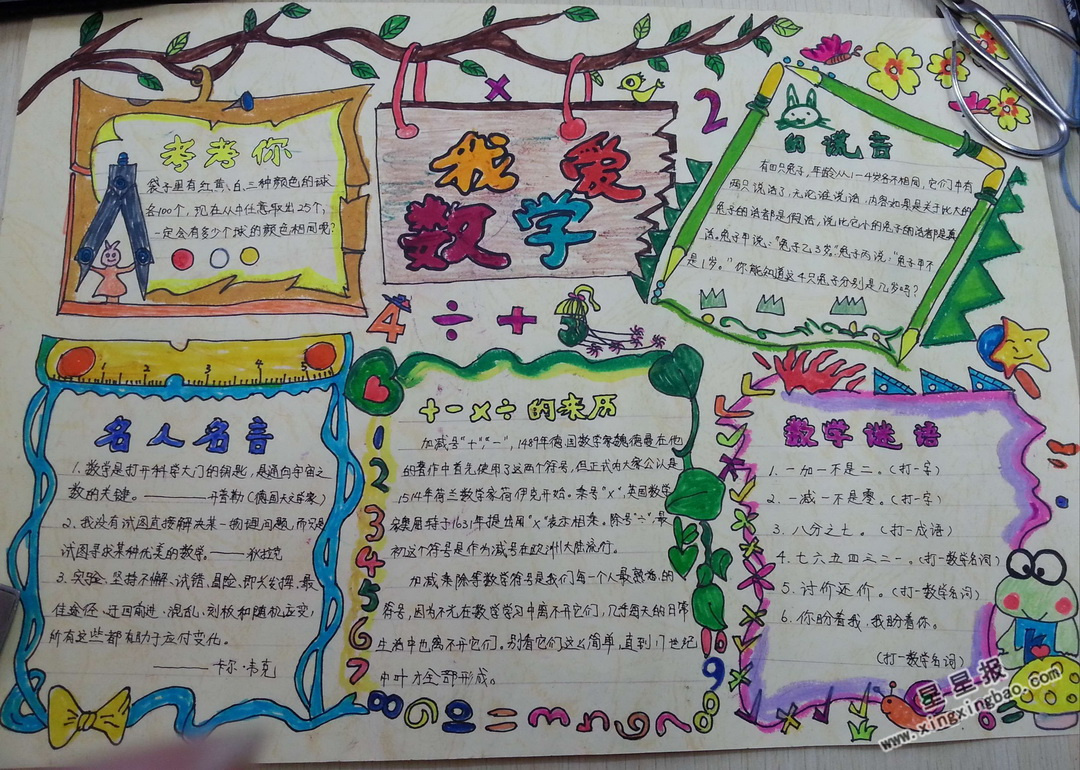 我爱
数学
考考你
袋子里有红、黄、白三种颜色的球
各100个,现在从中任意取出25个,
一定会有多少个球的颜色相同呢?
的谎言
有四只兔子,年龄从1-4岁各不相同,它们中有
两只说话了,无论谁说话,内容如果是关于比大的
兔子的话都是假话,说比它小的兔子的话都是真
话。兔子甲说:“兔子乙3岁。”兔子丙说:“兔子甲不
是1岁。”你能知道这4只兔子分别是几岁吗?
名人名言
1.数学是打开科学大门的钥匙,是通向宇宙之
数的关键。——开普勒(德国天文学家)
2.我没有试图直接解决某一物理问题,而只是
试图寻求某种优美的数学。——狄拉克
3.实验、坚持不懈、试错、冒险、即兴发挥、最
佳途径、迂回前进、混乱、刻板和随机应变,
所有这些都有助于应付变化。
——卡尔·韦克
+-×÷的来历
加减号“+”“-”,1489年德国数学家魏德曼在他
的著作中首先使用了这两个符号,但正式为大家公认是
1514年荷兰数学家荷伊克开始。乘号“×”,英国数学
家奥屈特于1631年提出用“×”表示相乘。除号“÷”,最
初这个符号是作为减号在欧洲大陆流行。
加减乘除等数学符号是我们每一个人最熟悉的
符号,因为不光在数学学习中离不开它们,几乎每天的日常
生活中也离不开它们。别看它们这么简单,直到17世纪
中叶才全部形成。
数学谜语
1.一加一不是二。(打一字)
2.一减一不是零。(打一字)
3.八分之七。(打一成语)
4.七六五四三二一。(打一数学名词)
5.讨价还价。(打一数学名词)
6.你盼着我,我盼着你。
(打一数学名词)
星星报
www.xingxingbao.com